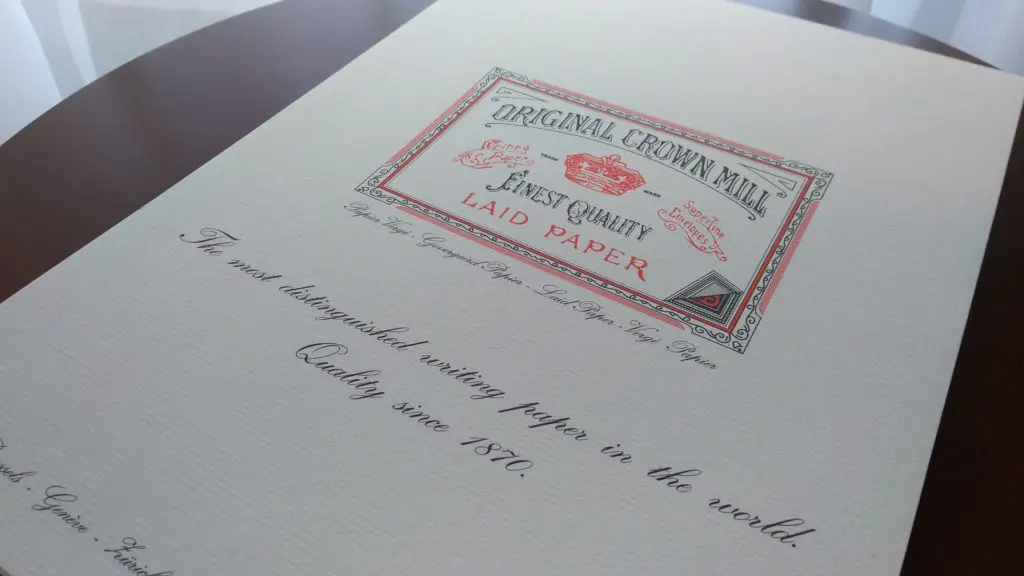 ORIGINAL CROWN MILL
TRADE MARK
FINEST QUALITY
Superfine
Envelopes
LAID PAPER
Papier Vergé - Geripptes Papier - Laid Paper - Vergé Papier
The most distinguished writing paper in the world.
Quality since 1870.
Genève - Zürich